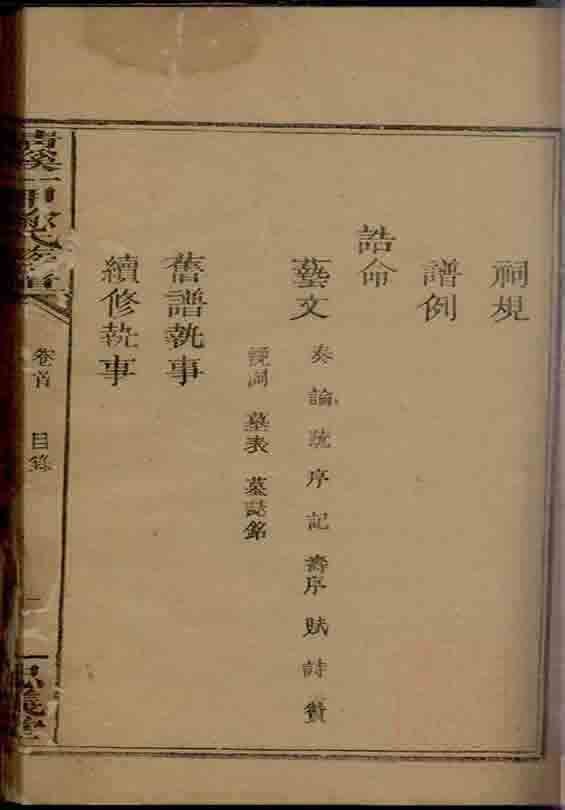 祠規
譜例
誥命
藝文
奏 論 疏 序 記 壽序 賦 詩 贊
詞 墓表 墓誌銘
舊譜執事
續修執事
卷首 目錄 一